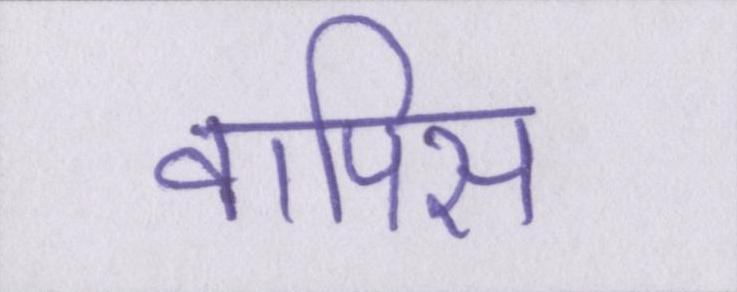 वापिस